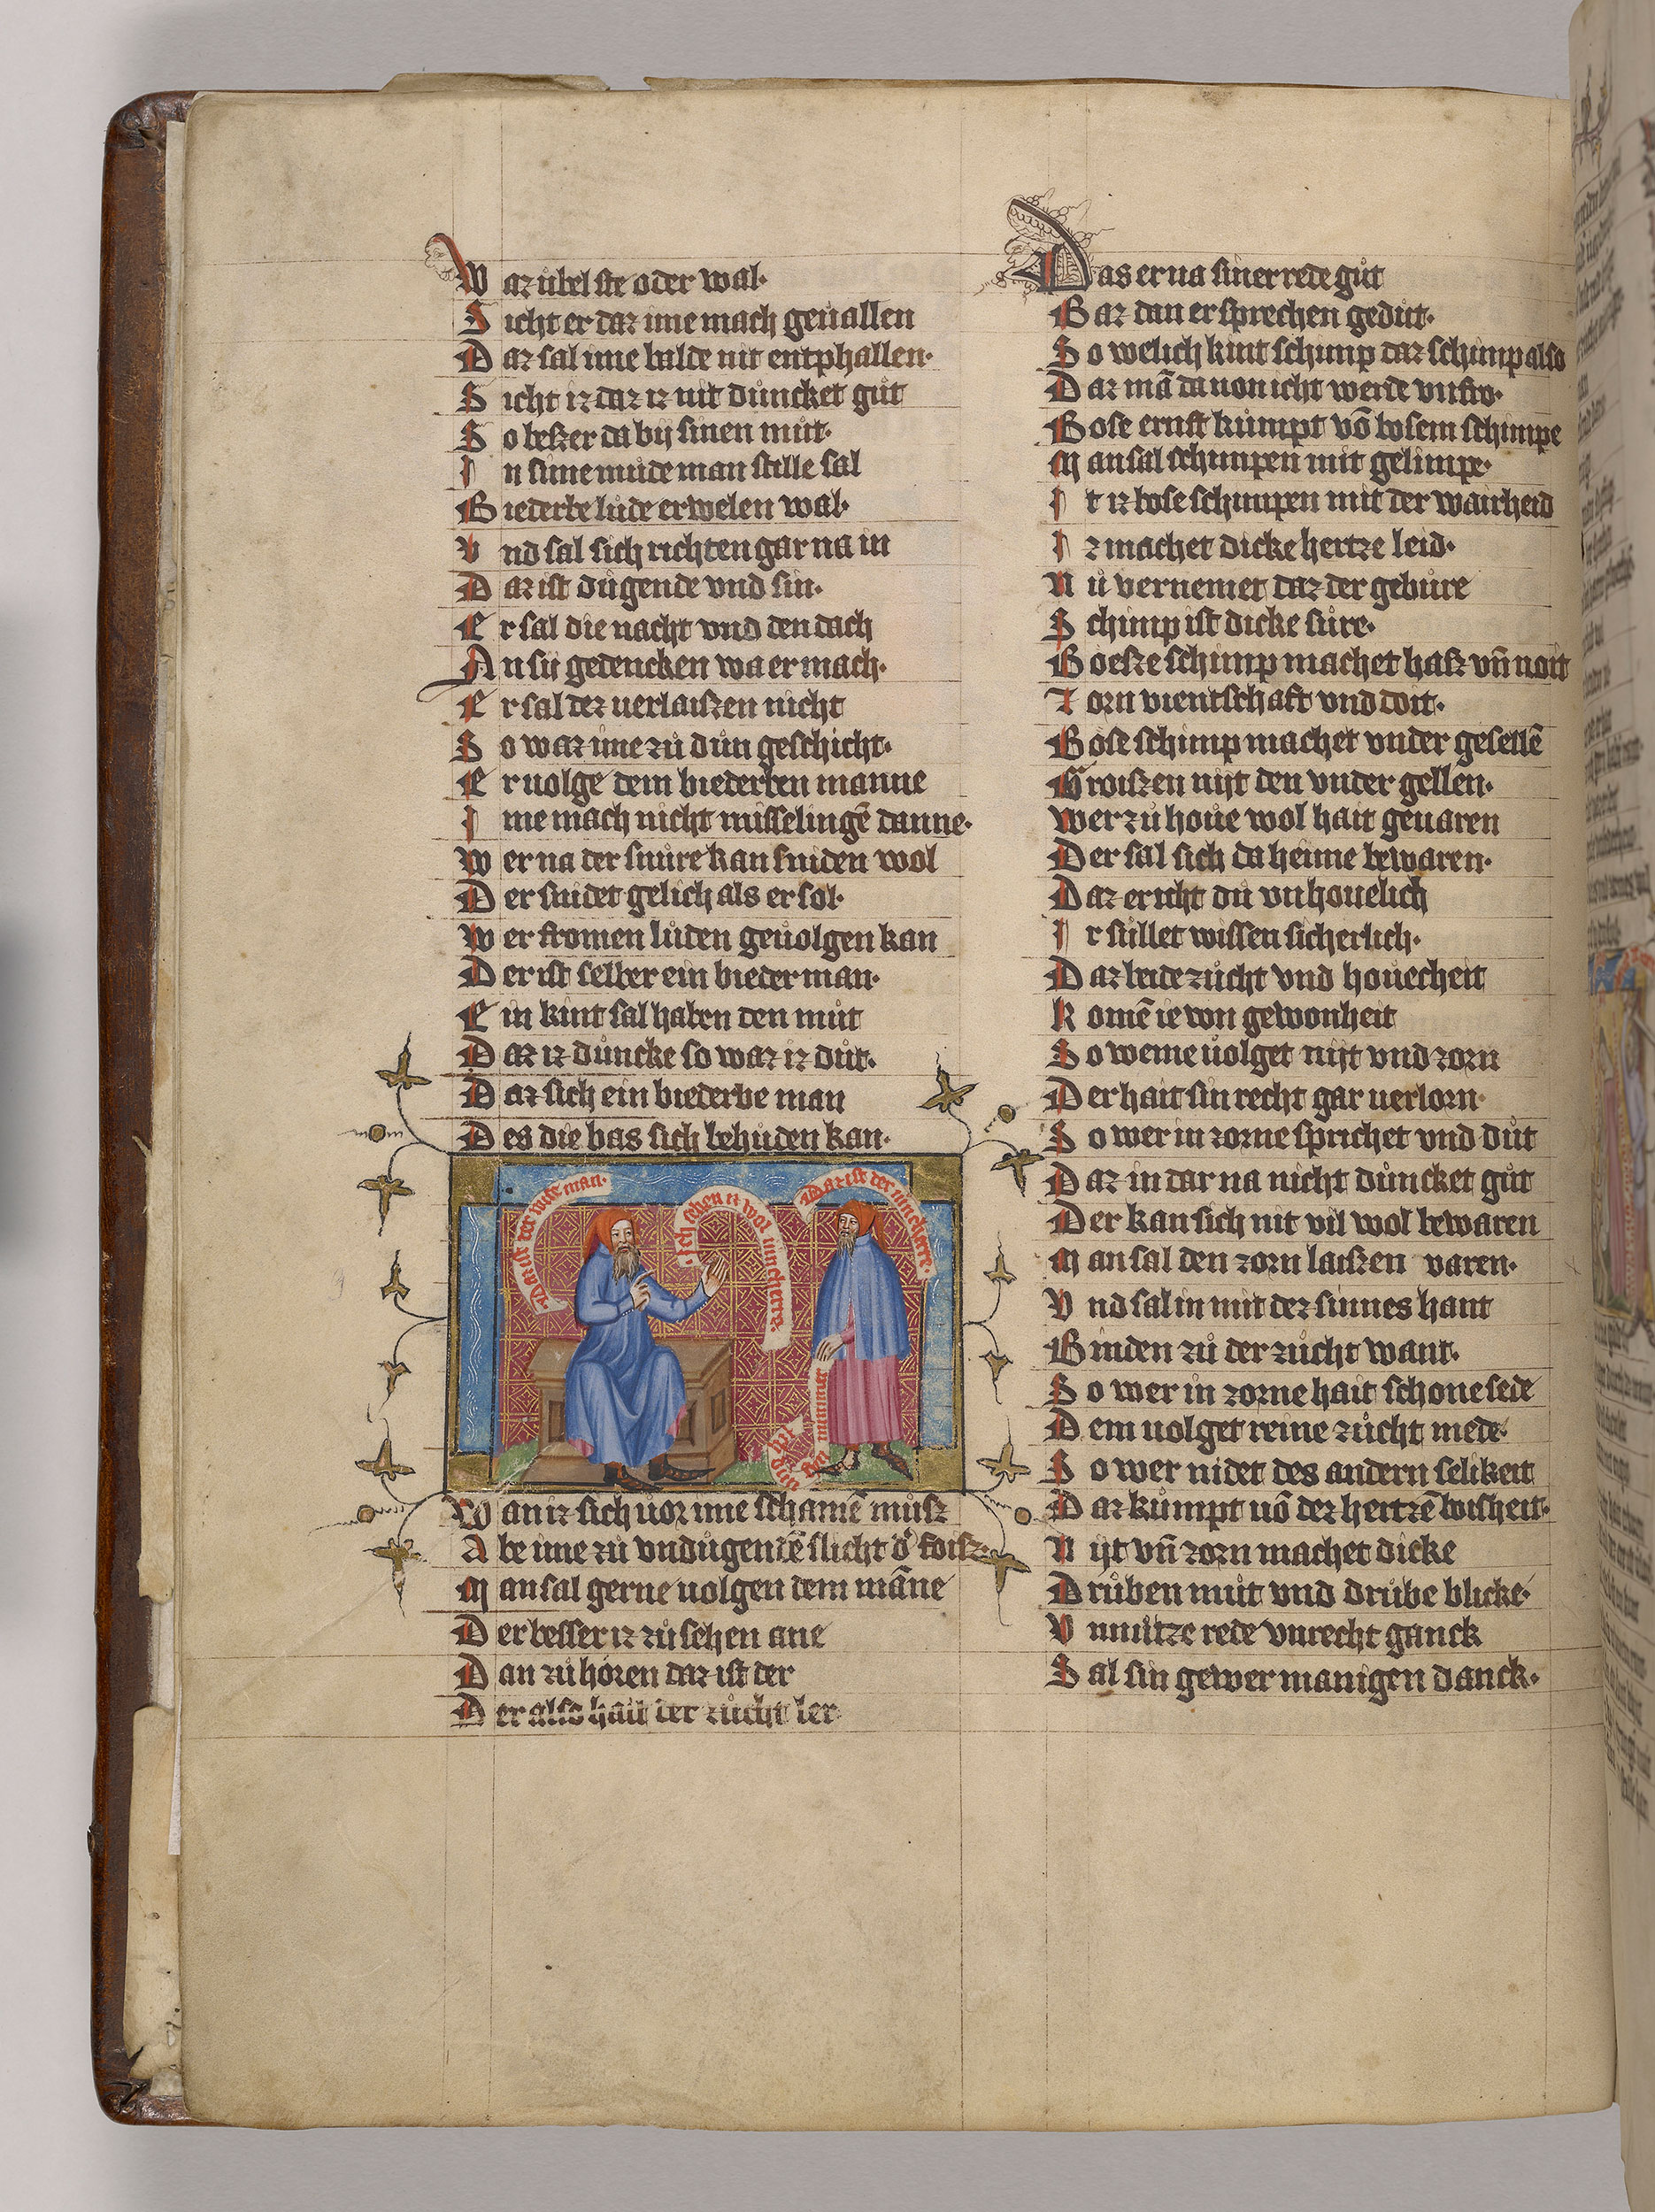 Waz ůbel ste oder wal·
Sicht er daz ime mach geuallen
Daz sal ime balde nit entphallen·
Sicht iz daz iz nit důncket gůt
So beszer da bij sinen můt·
In sime můde man stille sal
Biederbe lůde erwelen wal·
Vnd sal sich richten gar na in
Daz ist důgende vnd sin·
Er sal die nacht vnd den dach
An sij gedencken wa er mach·
Er sal dez uerlaiszen nicht
So waz ime zů důn geschicht·
Er uolge dem biederben manne
Ime mach nicht misselingē danne·
Wer na der snůre kan sniden wol
Der snidet gelich als er sol·
Wer fromen lůden geuolgen kan
Der ist selber ein biederman·
Ein kint sal haben den můt
Daz iz důncke so waz iz důt·
Daz sich ein biederbe man
Des die bas sich behůden kan·
Daz ist der wise man·
Ich sehen iz wol iuncherre
Daz ist der iuncherre·
Wan iz sich uor ime schamē můsz
Abe ime zů vndůgendē slicht d' foisz·
Man sal gerne uolgen dem māne
Der besser iz zů sehen ane
Dan zů hören daz ist der
Der also hait der zůcht ler
Das er na siner rede gůt
Baz dan er sprechen gedůt·
So welich kint schimp daz schimp also
Daz mā da uon icht werde vnfro·
Bose ernst kůmpt vō bosem schimpe
Man sal schimpen mit gelimpe·
It iz bose schimpen mit der wairheid
Iz machet dicke hertze leid·
Nů vernemet daz der gebůre
Schimp ist dicke sůre·
Boesze schimp machet hasz vn̄ noit
Zorn vientschaft vnd doit·
Bose schimp machet vnder gesellē
Groiszen nijt den vnder gellen·
Wer zů houe wol hait geuaren
Der sal sich da heime bewaren·
Daz er icht dů vnhouelich
Ir sůllet wissen sicherlich·
Daz beide zůcht vnd houecheit
Komē ie von gewonheit
So weme uolget nijt vnd zorn
Der hait sin recht gar uerlorn·
So wer in zorne sprichet vnd důt
Daz in dar na nicht důncket gůt
Der kan sich nit vil wol bewaren
Man sal den zorn laiszen varen·
Vnd sal in mit dez sinnes hant
Binden zů der zůcht want·
So wer in zorne hait schone sede
Dem uolget reine zůcht mede·
So wer nidet des andern selikeit
Daz kůmpt uō dez hertzē boisheit·
Nijt vn̄ zorn machet dicke
Drůben můt vnd drůbe blicke·
Vnnůtze rede vnrecht ganck
Sal sin gewer manigen danck·